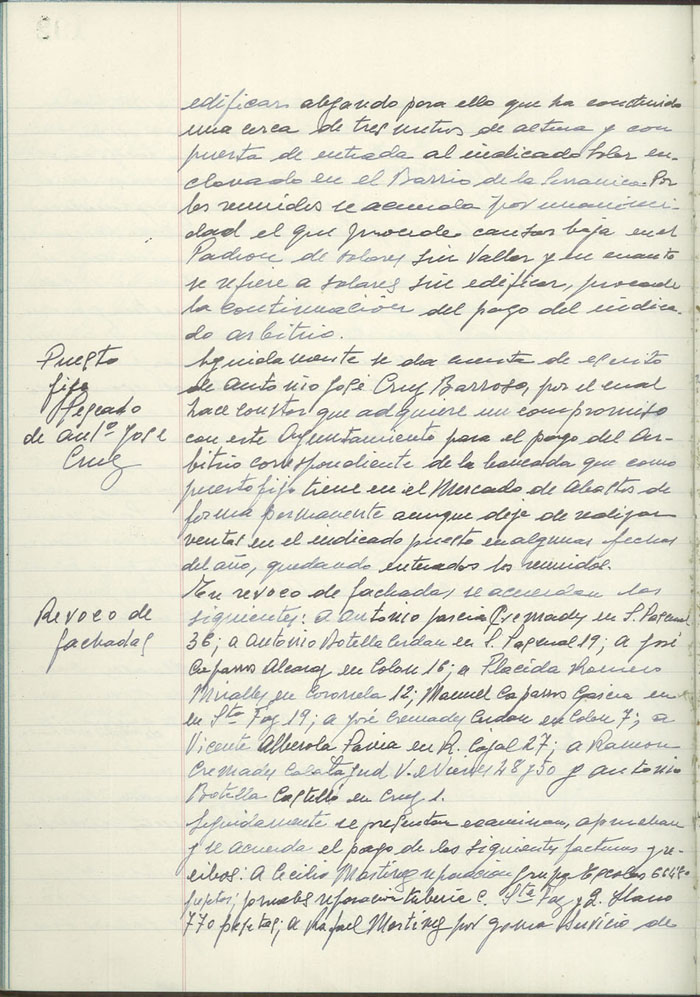 edificar alegando para ello que ha construido
una cerca de tres metros de altura y con
puerta de entrada al indicado solar en-
clavado en el Barrio de la Serranica. Por
los reunidos se acuerda por unanimi-
dad el que procede causar baja en el
Padron de solares sin vallar y en cuanto
se refiere a solares sin edificar, procede
la continuación del pago del indica-
do arbitrio.
Puesto
fijo
Pescado
de Antº Jose
Cruz
Seguidamente se da cuenta de escrito
de Antonio José Cruz Barroso, por el cual
hace constar que adquiere un compromiso
con este Ayuntamiento para el pago del Ar-
bitrio correspondiente de la bancada que como
puesto fijo tiene en el Mercado de Abastos de
forma permanente aunque deje de realizar
ventas en el indicado puesto en algunas fechas
del año, quedando enterados los reunidos.
Revoco de
fachadas
En revoco de fachadas se acuerdan los
siguientes: a Antonio Garcia Cremades en S. Pascual
36; a Antonio Botella Cerdan en S. Pascual 19; a José
Caparros Alcaraz en Colon 16; a Placida Romero
Miralles en Coronela 12; Manuel Caparros Garcia en
en Sta Faz 19; a José Cremades Cerdan en Colon 7; a
Vicente Alberola en R. Cajal 27; a Ramon
Cremades Calatayud V. e Nieves 48 y 50 y Antonio
Botella Castelló en Cruz 1.
Seguidamente se presentan examinan, aprueban
y se acuerda el pago de las siguientes facturas y re-
cibos: A Cecilio Martinez reparacion Grupo Escolar
pesetas; jornales reparacion tuberia c. Sta Faz y
770 pesetas; a Rafael Martinez por goma Servicio de